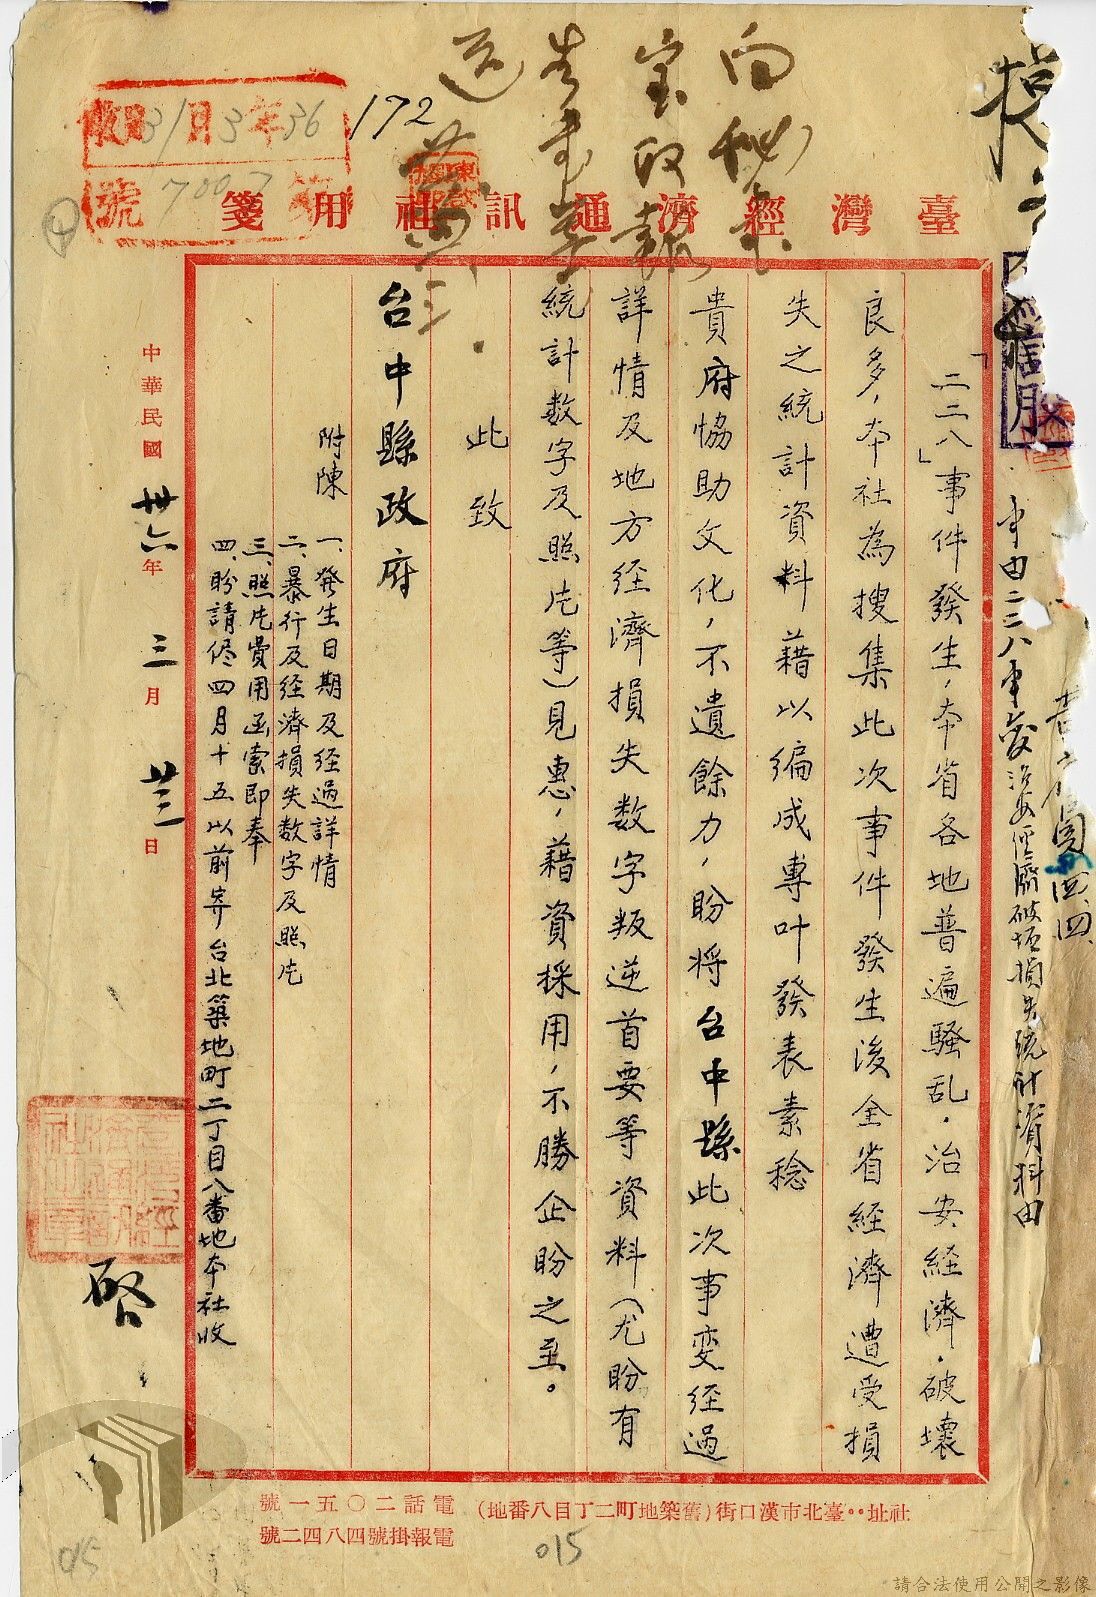 臺灣經濟通訊社用箋
「二二八」事件發生，本省各地普遍騷乱，治安経濟，破壞
良多，本社為搜集此次事件發生後全省経濟遭受損
失之統計資料藉以編成專叶發表素稔
貴府協助文化，不遺餘力，盼将台中縣此次事変経過
詳情及地方経濟損失数字叛逆首要等資料（尤盼有
統計数字及照片等）見惠，藉資採用，不勝企盼之至。
此致
台中縣政府
附陳
一、發生日期及経過詳情
二、暴行及経濟損失数字及照片
三、照片費用函索即奉
四、盼請於四月十五以前寄台北築地町二丁目八番地本社收
啓
中華民國卅六年三月廿三日
社址：臺北市漢口街（舊築地町二丁目八番地）
電話二〇五一號
電報掛號四八四二號
收 36年3月31日
7007號
172
事由二二八事變治安經濟破壞損失統計資料由
015
015
請合法使用公開之影像